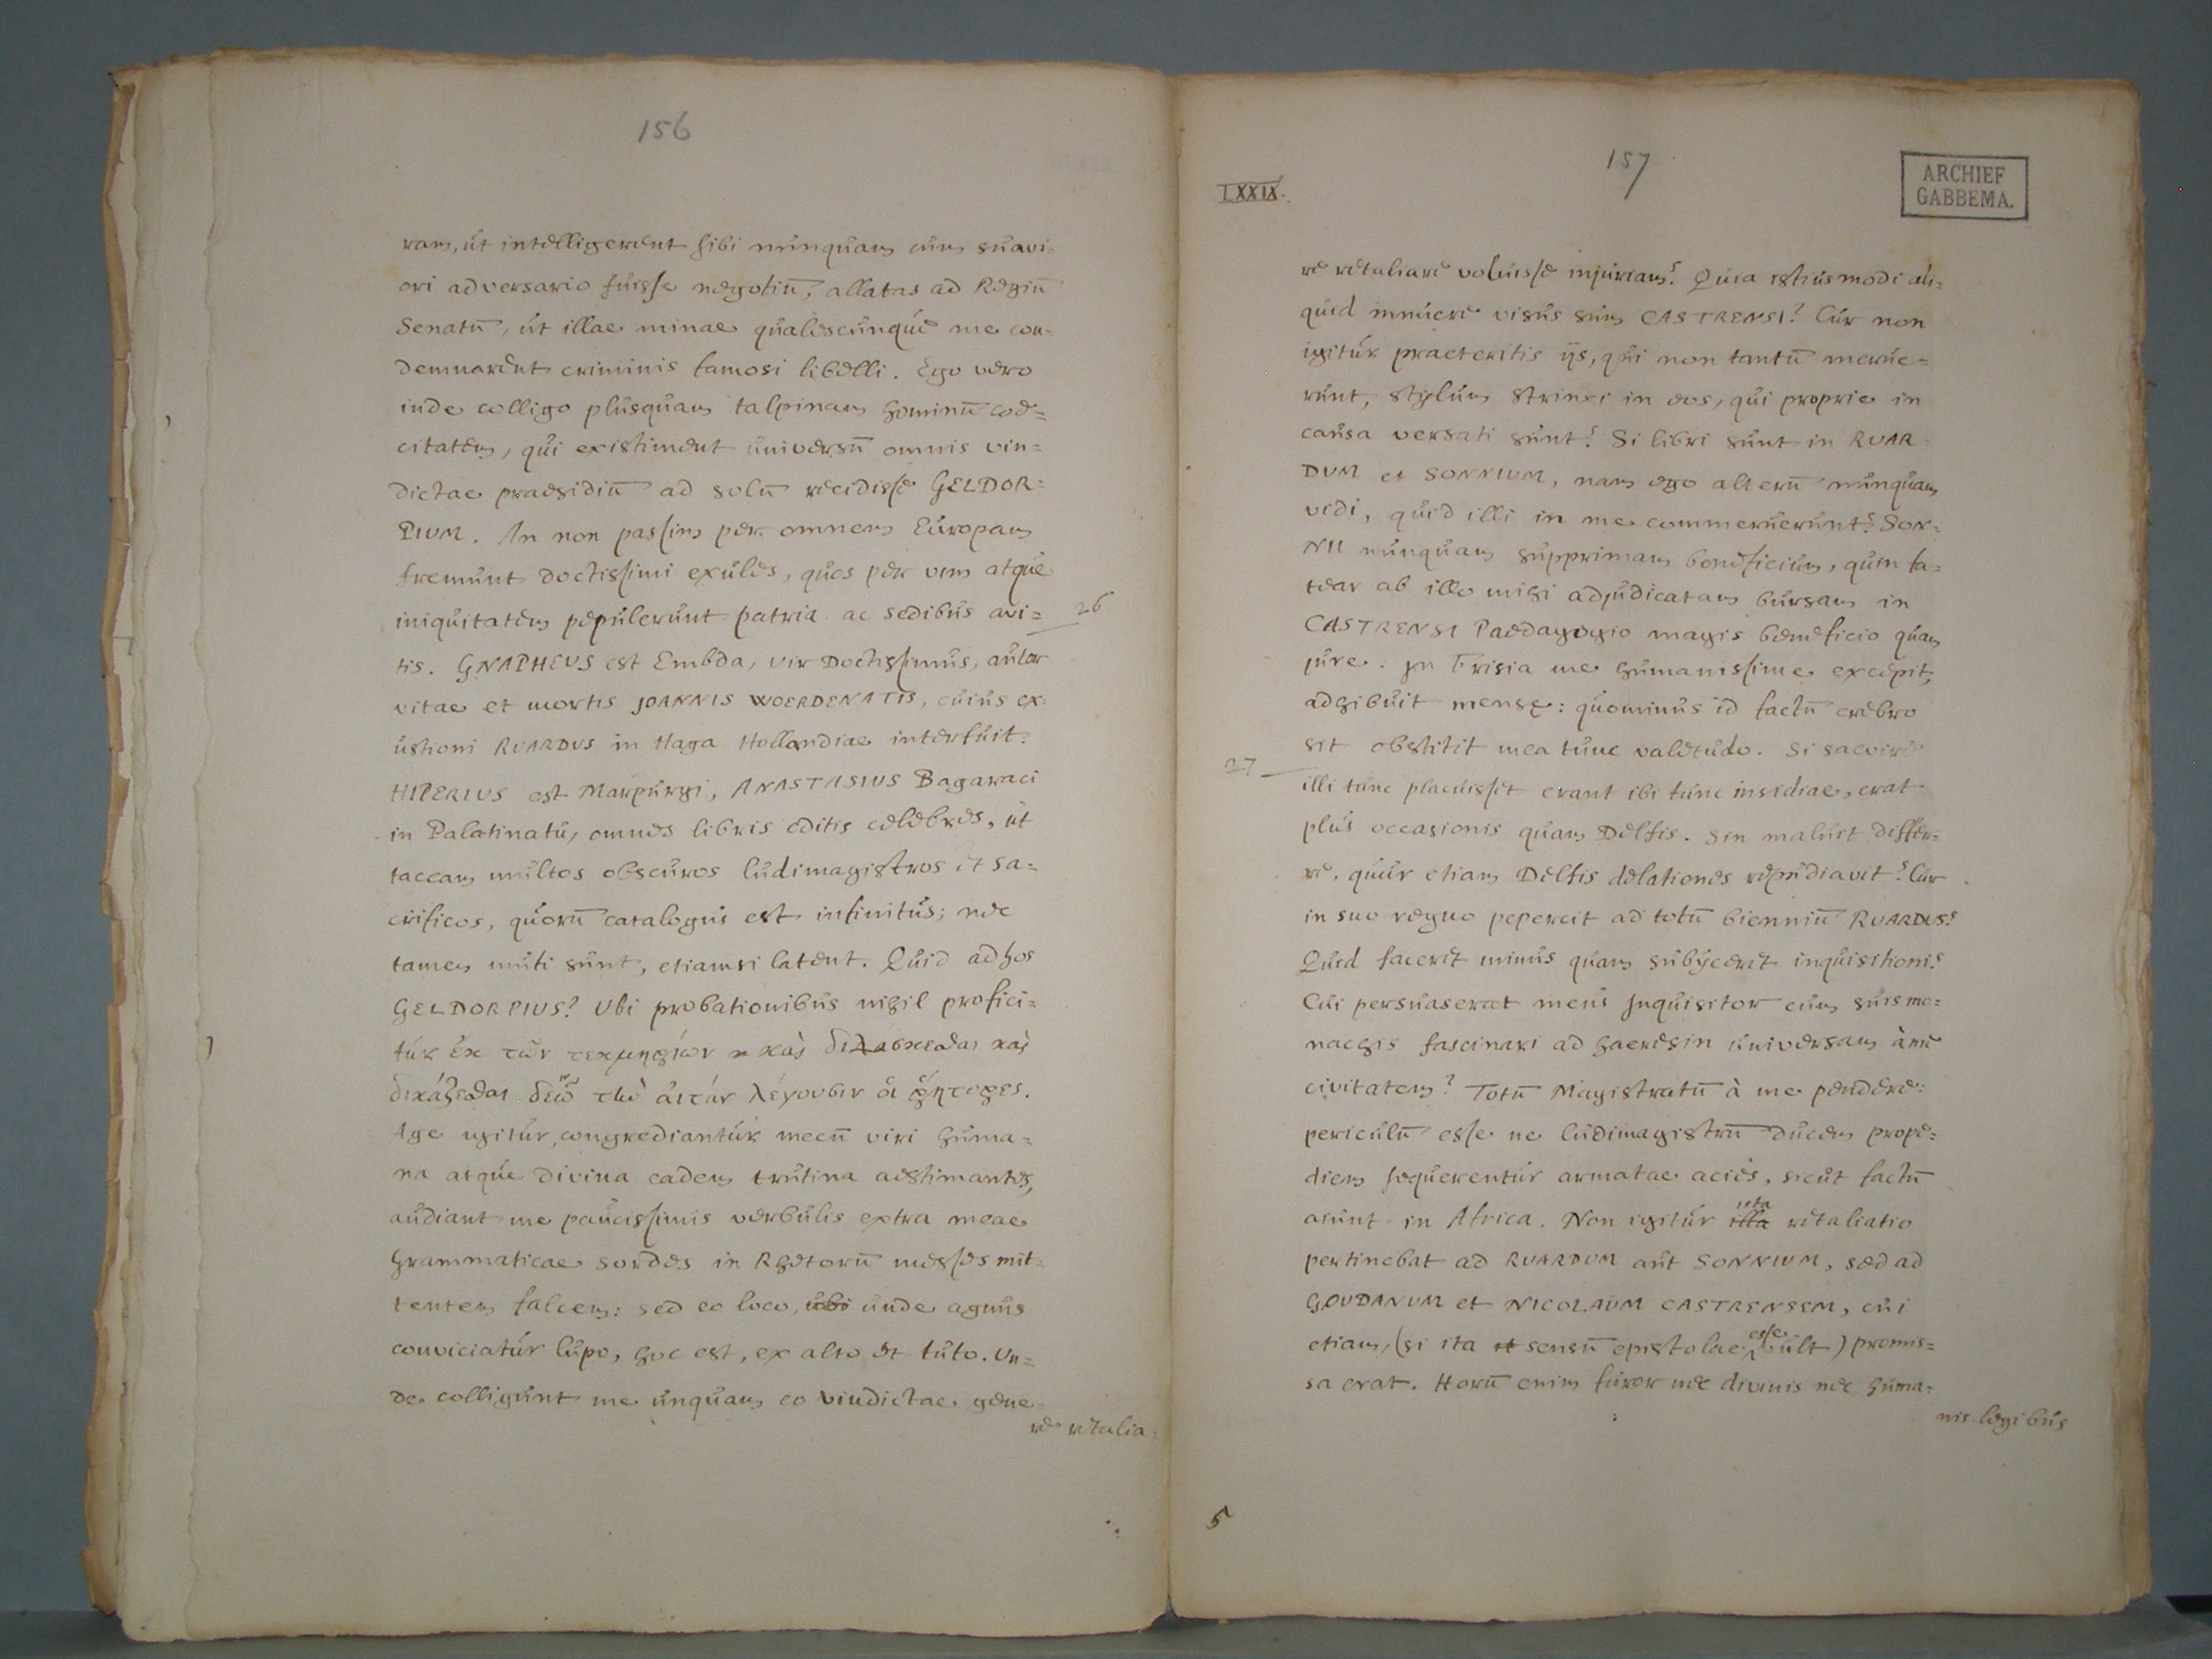 156
ram, ut intelligerent sibi nunquam cum suavi
ori adversario fuisse negotiū, allatas ad Regiū
Senatū, ut illae minae qualescunque me con=
demnarent criminis famosi libelli. Ego vero
inde colligo plusquam talpinam hominū coe=
citatem, qui existiment universū omnis vin=
dictae praesidiū ad solū recidisse GELDOR=
PIUM. An non passim per omnem Europam
fremunt doctissimi exules, quos per vim atque
iniquitatem pepulerunt patria ac sedibus avi= 26
tis. GNAPHEUS est Embda, vir Doctissimus, autor
vitae et mortis JOANNIS WOERDENATIS, cuius ex=
ustioni RUARDUS in Haga Hollandiae interfuit.
HIPERIUS est Marpurgi, ANASTASIUS Bagaraci
in Palatinatu, omnes libris editis celebres, ut
taceam multos obscuros ludimagistros et sa=
crificos, quorū catalogus est infinitus; nec
tamen muti sunt, etiamsi latent. Quid ad hos
GELDORPIUS? Ubi probationibus nihil profici=
tur ἐκ τῶν τεκμηρίων καὶ
δικάζεσθαι λέγουσιν οἱ ῥήτορες.
Age igitur, congrediantur mecū viri huma=
na atque divina eadem trutina aestimantes,
audiant me paucissimis verbulis extra meae
Grammaticae sordes in Rhetorū messes mit=
tentem falcem: sed eo loco, ubi unde agnus
conviciatur lupo, hoc est, ex alto et tuto. Un=
de colligunt me unquam eo vindictae gene=
re retalia=
157
LXXIX.
ARCHIEF
GABBEMA.
re retaliare voluisse injuriam? Quia istiusmodi ali=
quid innuere visus sum CASTRENSI? Cur non
igitur praeteritis ijs, qui non tantū merue=
runt, stylum strinxi in eos, qui proprie in
causa versati sunt? Si libri sunt in RUAR=
DUM et SONNIUM, nam ego alterū nunquam
vidi, quid illi in me commeruerunt? SON=
NII nunquam supprimam beneficium, quin fa=
tear ab illo mihi adjudicatam bursam in
CASTRENSI Paedagogio magis beneficio quam
jure: In Frisia me humanissime excepit,
adhibuit mensę: quominus id factū crebro
sit obstitit mea tunc valetudo. Si saevire
27 illi tunc placuisset erant ibi tunc insidiae, erat
plus occasionis quam Delfis. Sin maluit differ=
re, quur etiam Delfis delationes repudiavit? Cur
in suo regno pepercit ad totū bienniū RUARDUS?
Quid faceret minus quam subijceret inquisitioni?
Cui persuaserat meus Inquisitor cum suis mo=
nachis fascinari ad haeresin universam à me
civitatem? Totū Magistratū à me pendere:
periculū esse ne ludimagistrū ducem prope=
diem sequerentur armatae acies, sicut factū
aiunt in Africa. Non igitur illa ista retaliatio
pertinebat ad RUARDUM aut SONNIUM, sed ad
GOUDANUM et NICOLAUM CASTRENSEM, cui
etiam, (si ita et sensū epistolae esse vult) promis=
sa erat. Horū enim furor nec divinis nec huma=
nis legibus
5